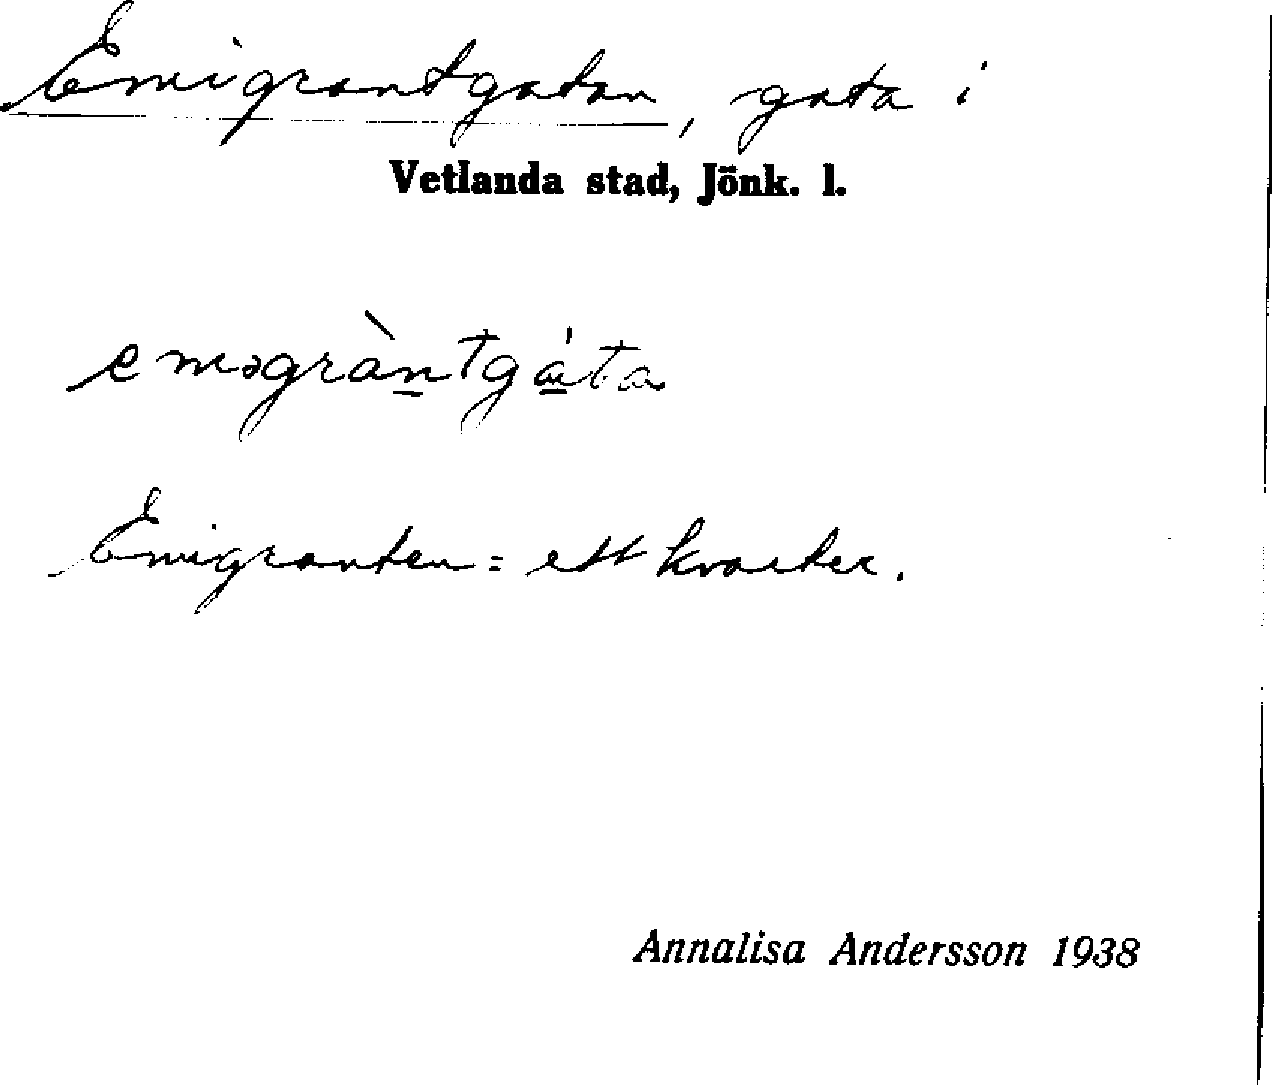 Emigrantgatan, gata i
Vetlanda stad, Jönk. l.
eməgràn̲tgá̲ta
Emigranten = ett kvarter.
Annalisa Andersson 1938